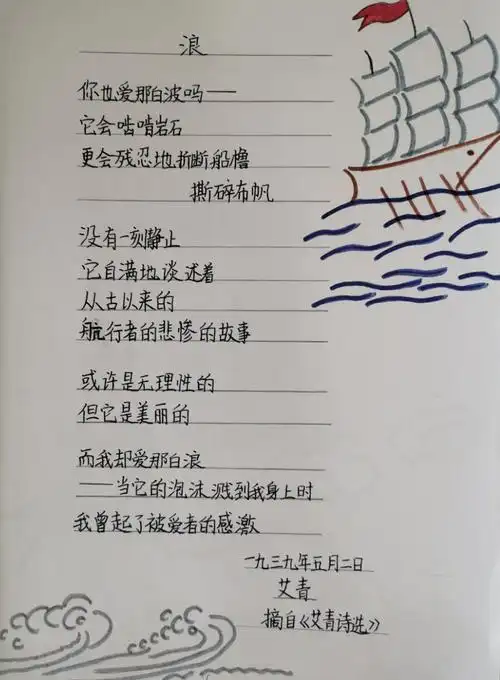 浪
你也爱那白波吗——
它会啮啃岩石
更会残忍地折断船橹
撕碎布帆
没有一刻静止
它自满地谈述着
从古以来的
航行者的悲惨的故事
或许是无理性的
但它是美丽的
而我却爱那白浪
——当它的泡沫溅到我身上时
我曾起了被爱者的感激
一九三九年五月二日
艾青
摘自《艾青诗选》